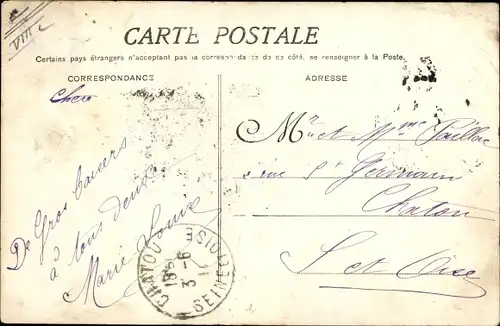 VIIIc
CARTE POSTALE
Certains pays étrangers n'acceptant pas la correspondance de ce côté, se renseigner à la Poste.
CORRESPONDANCE
ADRESSE
De Gros baisers
à tous deux
Marie Louise
Mr et Mme
rue St Germain
Chatou
S et Oise
CHATOU
3 - 6
SEINE ET OISE